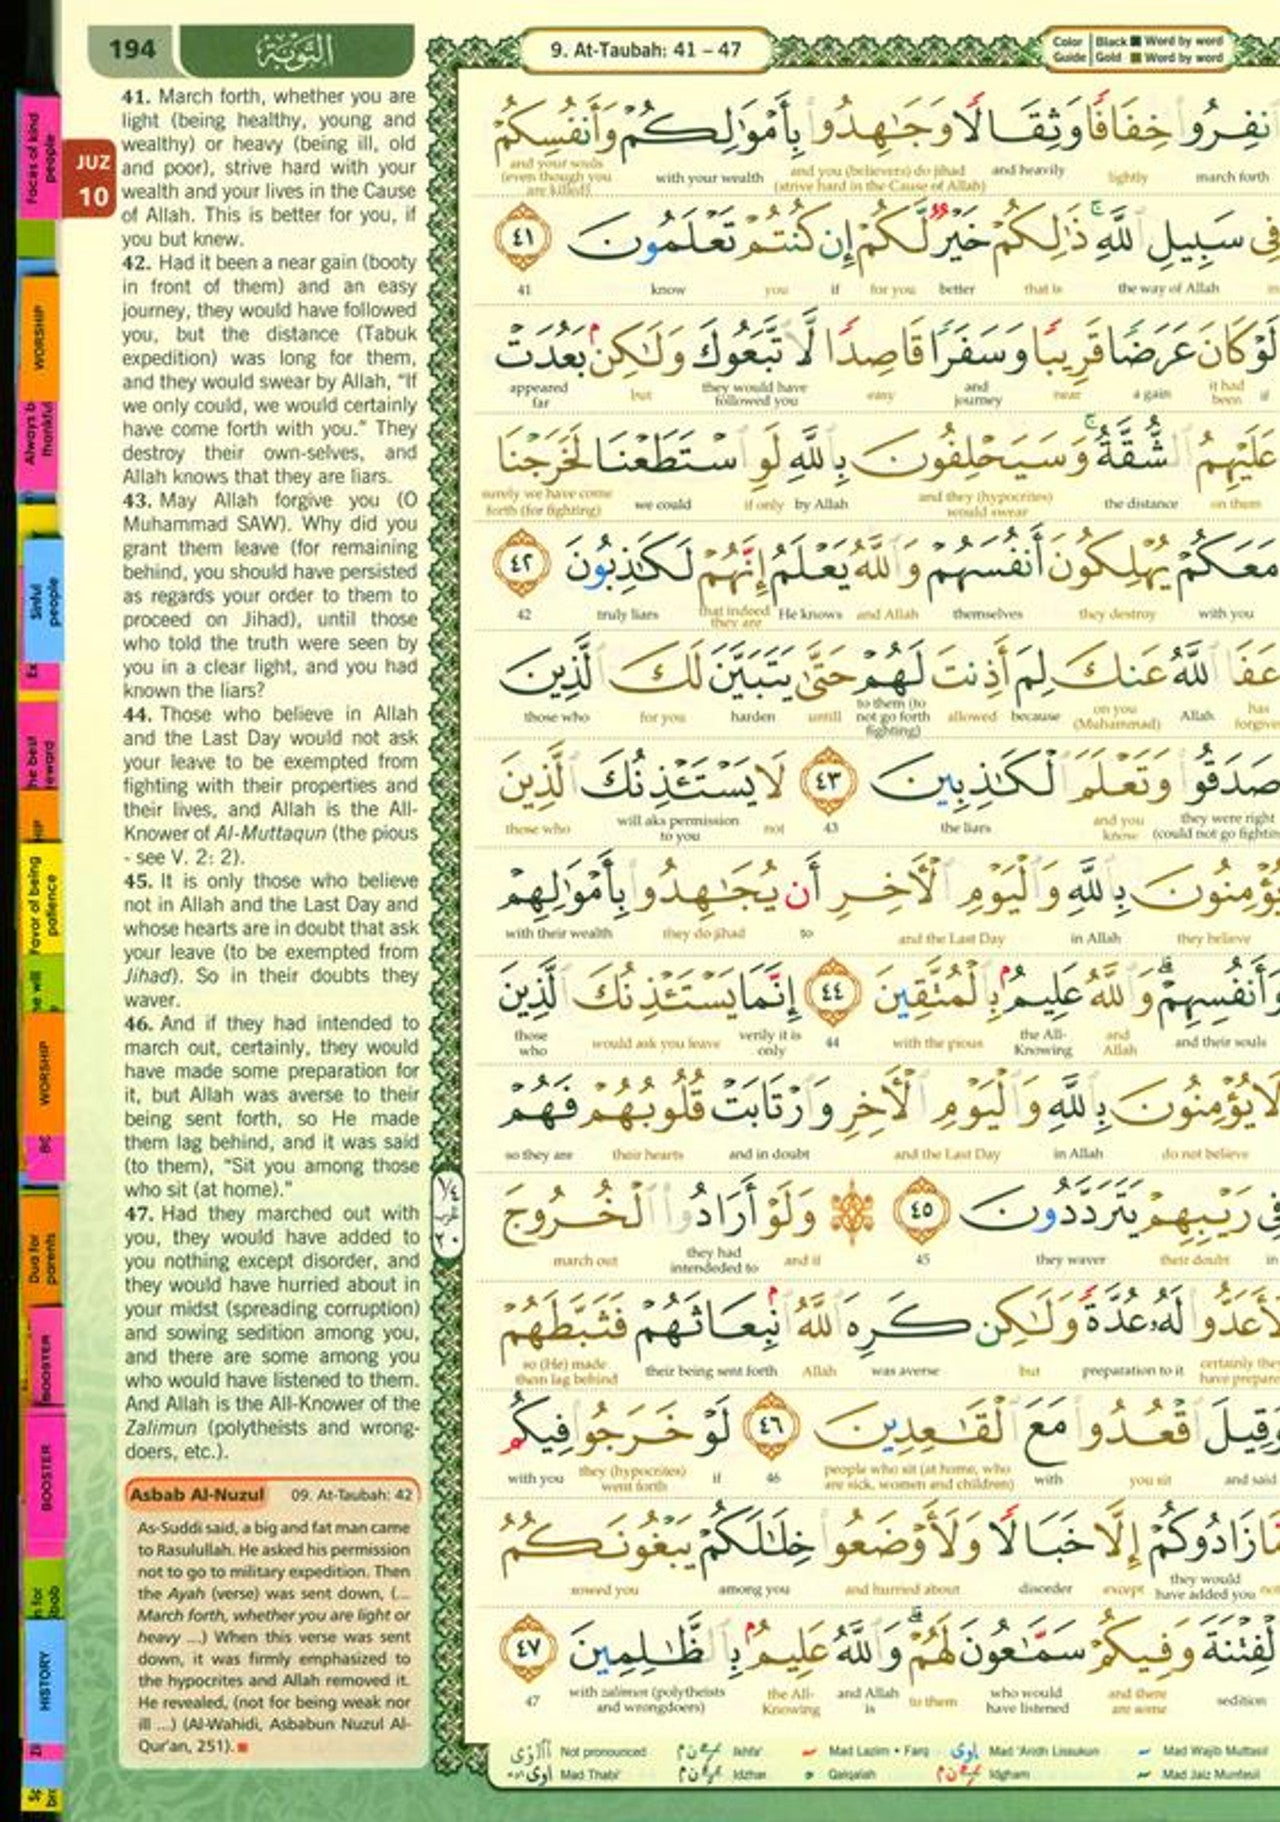 194
التوبة
9. At-Taubah: 41 – 47
Color Guide | Black ■ Word by word
Gold ■ Word by word
JUZ
10
41. March forth, whether you are
light (being healthy, young and
wealthy) or heavy (being ill, old
and poor), strive hard with your
wealth and your lives in the Cause
of Allah. This is better for you, if
you but knew.
42. Had it been a near gain (booty
in front of them) and an easy
journey, they would have followed
you, but the distance (Tabuk
expedition) was long for them,
and they would swear by Allah, "If
we only could, we would certainly
have come forth with you." They
destroy their own-selves, and
Allah knows that they are liars.
43. May Allah forgive you (O
Muhammad SAW). Why did you
grant them leave (for remaining
behind, you should have persisted
as regards your order to them to
proceed on Jihad), until those
who told the truth were seen by
you in a clear light, and you had
known the liars?
44. Those who believe in Allah
and the Last Day would not ask
your leave to be exempted from
fighting with their properties and
their lives, and Allah is the All-
Knower of Al-Muttaqun (the pious
- see V. 2: 2).
45. It is only those who believe
not in Allah and the Last Day and
whose hearts are in doubt that ask
your leave (to be exempted from
Jihad). So in their doubts they
waver.
46. And if they had intended to
march out, certainly, they would
have made some preparation for
it, but Allah was averse to their
being sent forth, so He made
them lag behind, and it was said
(to them), "Sit you among those
who sit (at home)."
47. Had they marched out with
you, they would have added to
you nothing except disorder, and
they would have hurried about in
your midst (spreading corruption)
and sowing sedition among you,
and there are some among you
who would have listened to them.
And Allah is the All-Knower of the
Zalimun (polytheists and wrong-
doers, etc.).
Asbab Al-Nuzul 09. At-Taubah: 42
As-Suddi said, a big and fat man came
to Rasulullah. He asked his permission
not to go to military expedition. Then
the Ayah (verse) was sent down, (...
March forth, whether you are light or
heavy ...) When this verse was sent
down, it was firmly emphasized to
the hypocrites and Allah removed it.
He revealed, (not for being weak nor
ill ...) (Al-Wahidi, Asbabun Nuzul Al-
Qur'an, 251).
انفِرُوا خِفَافًا وَثِقَالًا وَجَٰهِدُوا بِأَمْوَٰلِكُمْ وَأَنفُسِكُمْ
march forth lightly and heavily and you (believers) do jihad (strive hard in the Cause of Allah) with your wealth and your souls (even though you are killed)
فِي سَبِيلِ اللَّهِ ذَٰلِكُمْ خَيْرٌ لَّكُمْ إِن كُنتُمْ تَعْلَمُونَ ٤١
the way of Allah that is better for you if you know 41
لَوْ كَانَ عَرَضًا قَرِيبًا وَسَفَرًا قَاصِدًا لَّاتَّبَعُوكَ وَلَٰكِن بَعُدَتْ
if it had been a gain near and journey easy they would have followed you but appeared far
عَلَيْهِمُ الشُّقَّةُ وَسَيَحْلِفُونَ بِاللَّهِ لَوِ اسْتَطَعْنَا لَخَرَجْنَا
on them the distance and they (hypocrites) would swear by Allah if only we could surely we have come forth (for fighting)
مَعَكُمْ يُهْلِكُونَ أَنفُسَهُمْ وَاللَّهُ يَعْلَمُ إِنَّهُمْ لَكَٰذِبُونَ ٤٢
with you they destroy themselves and Allah He knows that indeed they are truly liars 42
عَفَا اللَّهُ عَنكَ لِمَ أَذِنتَ لَهُمْ حَتَّىٰ يَتَبَيَّنَ لَكَ الَّذِينَ
has Allah on you (Muhammad) because allowed to them (to not go forth fighting) untill harden for you those who
صَدَقُوا وَتَعْلَمَ الْكَٰذِبِينَ ٤٣ لَا يَسْتَـْٔذِنُكَ الَّذِينَ
they were right and you know the liars 43 not will aks permission to you those who
يُؤْمِنُونَ بِاللَّهِ وَالْيَوْمِ الْأٓخِرِ أَن يُجَٰهِدُوا بِأَمْوَٰلِهِمْ
they believe in Allah and the Last Day to they do jihad with their wealth
وَأَنفُسِهِمْ وَاللَّهُ عَلِيمٌ بِالْمُتَّقِينَ ٤٤ إِنَّمَا يَسْتَـْٔذِنُكَ الَّذِينَ
and their souls and Allah the All-Knowing with the pious 44 verily it is only would ask you leave those who
لَا يُؤْمِنُونَ بِاللَّهِ وَالْيَوْمِ الْأٓخِرِ وَارْتَابَتْ قُلُوبُهُمْ فَهُمْ
do not believe in Allah and the Last Day and in doubt their hearts so they are
فِي رَيْبِهِمْ يَتَرَدَّدُونَ ٤٥ وَلَوْ أَرَادُوا الْخُرُوجَ
in their doubt they waver 45 and if they had intendeded to march out
لَأَعَدُّوا لَهُ عُدَّةً وَلَٰكِن كَرِهَ اللَّهُ انبِعَاثَهُمْ فَثَبَّطَهُمْ
certainly they preparation to it but was averse Allah their being sent forth so (He) made them lag behind
وَقِيلَ اقْعُدُوا مَعَ الْقَٰعِدِينَ ٤٦ لَوْ خَرَجُوا فِيكُم
and said you sit with people who sit (at home, who are sick, women and children) 46 if they (hypocrites) went forth with you
مَّا زَادُوكُمْ إِلَّا خَبَالًا وَلَأَوْضَعُوا خِلَٰلَكُمْ يَبْغُونَكُمُ
they would have added you except disorder and hurried about among you sowed you
الْفِتْنَةَ وَفِيكُمْ سَمَّٰعُونَ لَهُمْ وَاللَّهُ عَلِيمٌ بِالظَّٰلِمِينَ ٤٧
sedition and there are some who would have listened to them and Allah is the All-Knowing with zalimun (polytheists and wrongdoers) 47
Not pronounced Ikhfa' Mad Lazim • Farq Mad 'Aridh Lissukun Mad Wajib Muttasil
Mad Thabi' Idzhar Qalqalah Idgham Mad Jaiz Munfasil
Faces of kind people
WORSHIP
Always be thankful
Sinful people
WORSHIP
Dua for parents
BOOSTER
BOOSTER
HISTORY